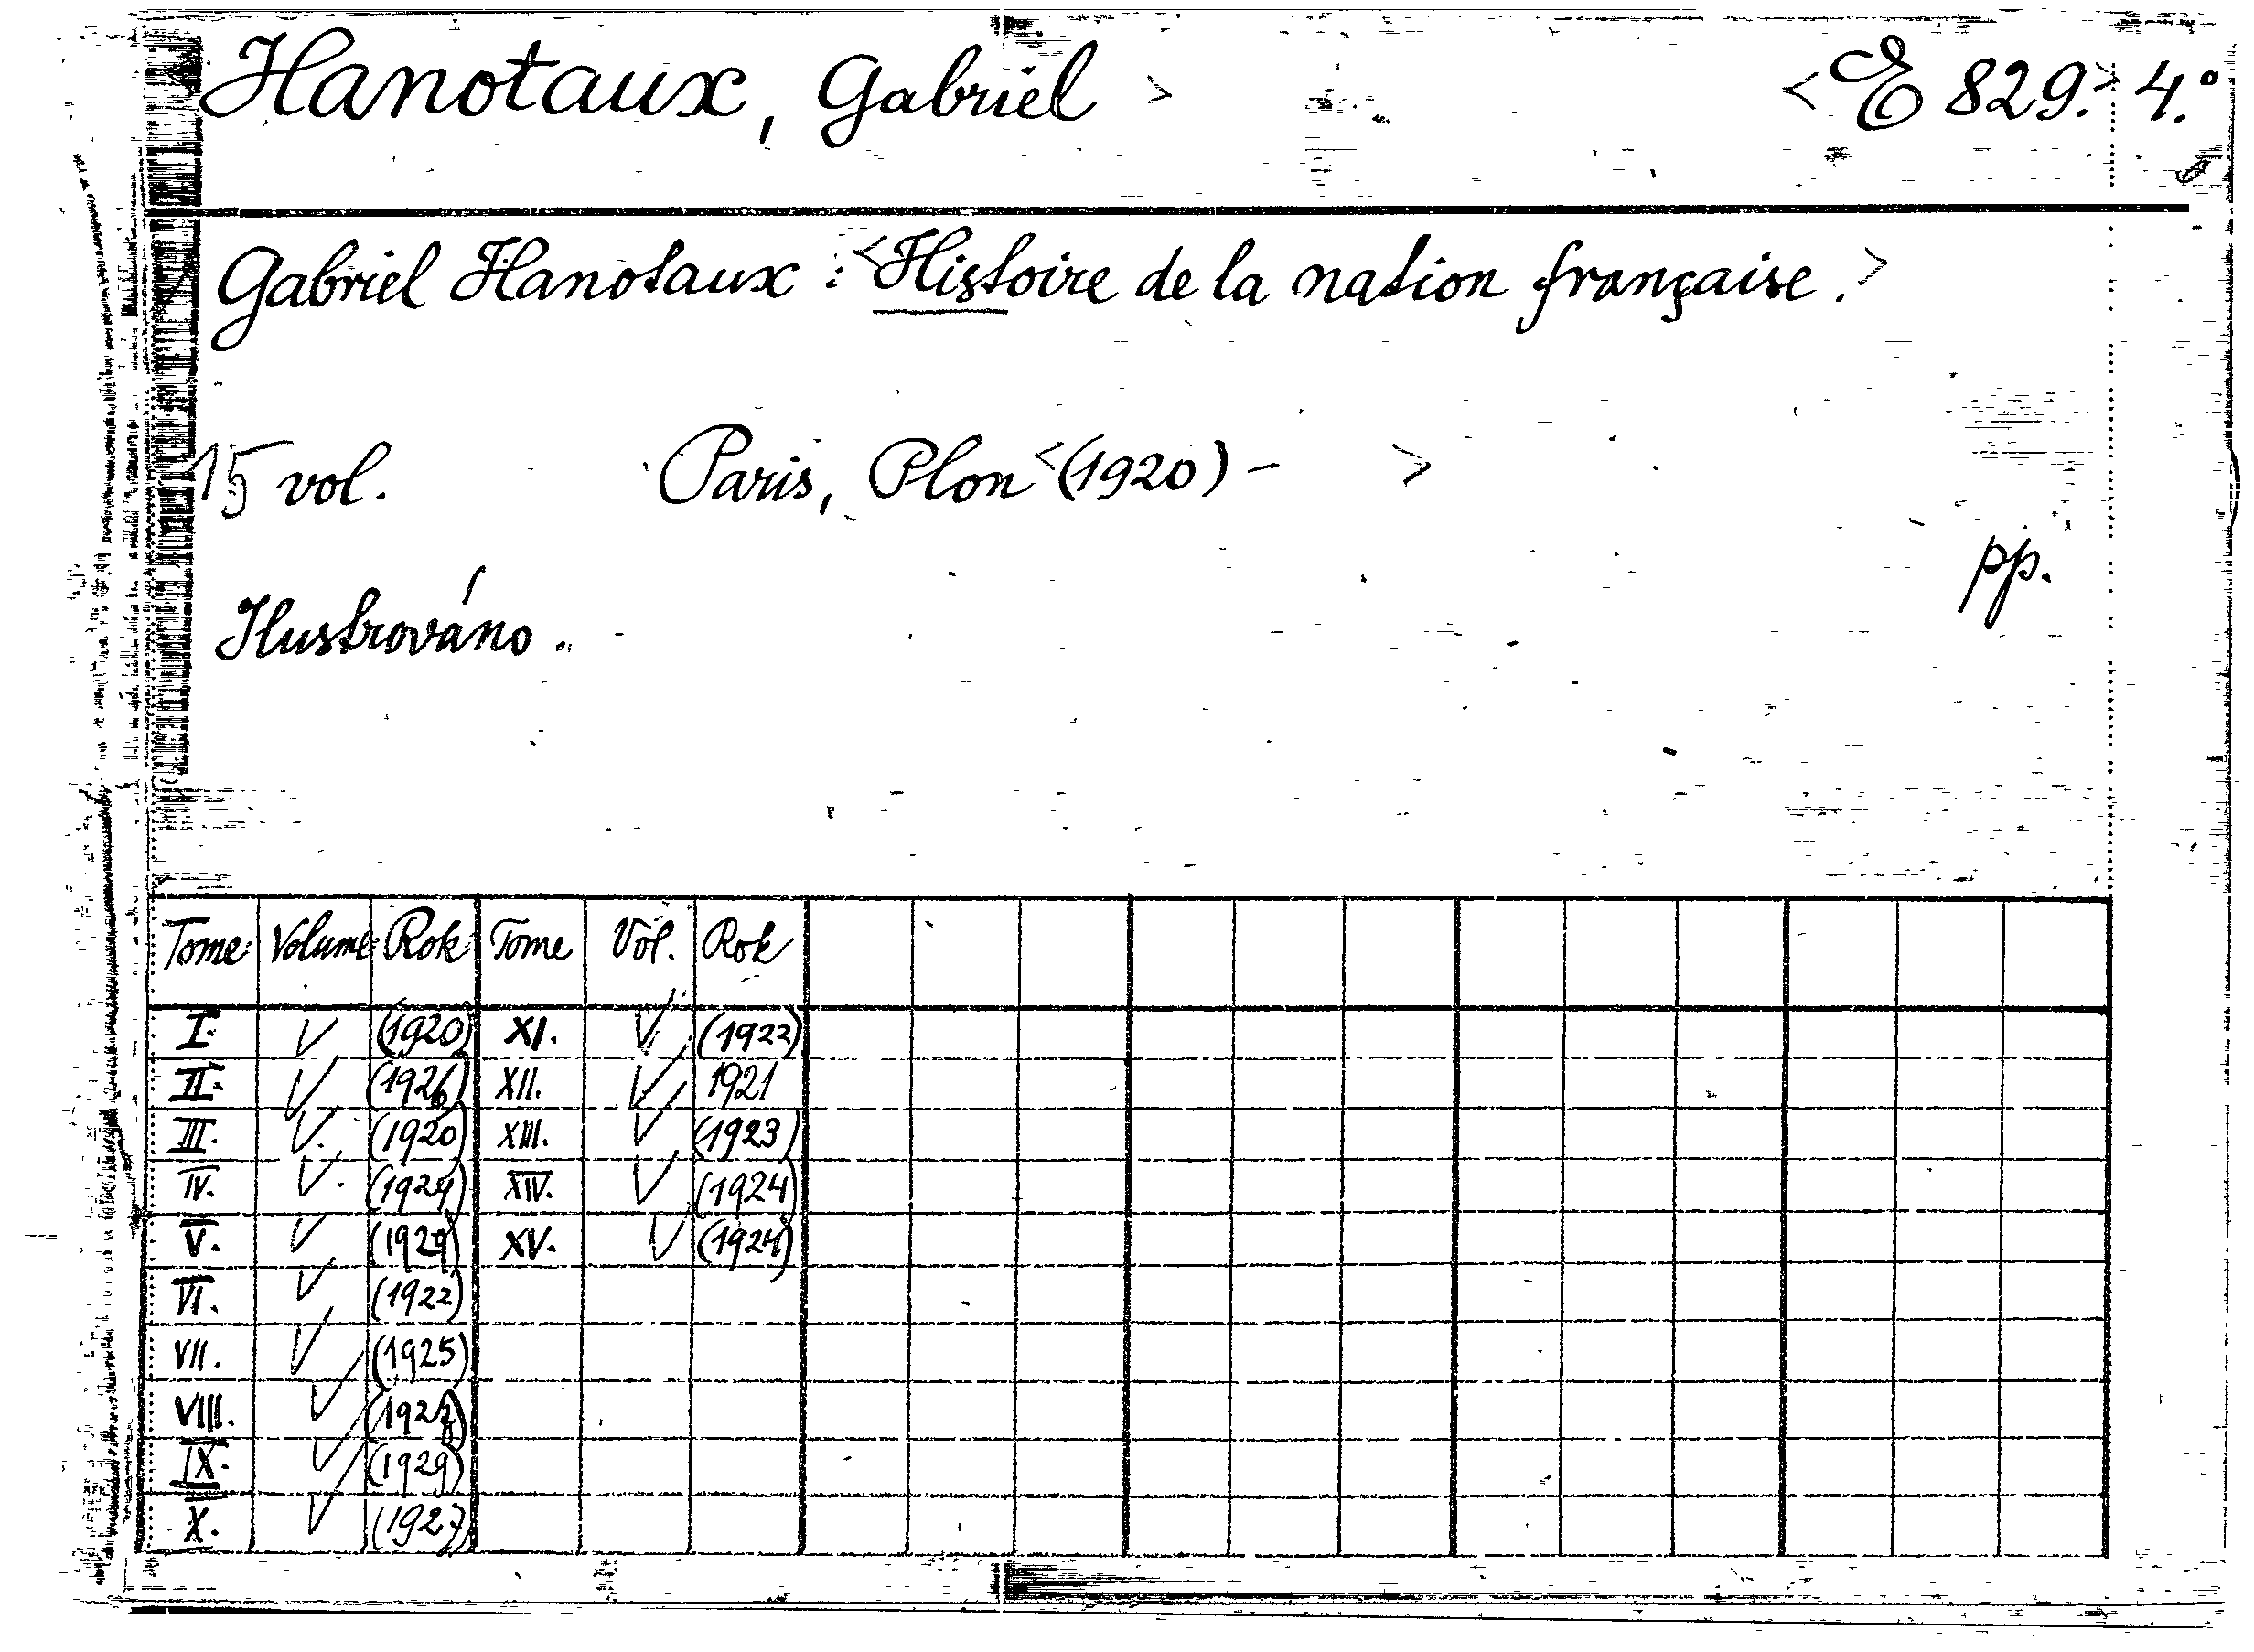 Hanotaux, Gabriel > <E 829.> 4.°
Gabriel Hanotaux : <Histoire de la nation française.>
15 vol. Paris, Plon <(1920) – >
pp.
Ilustrováno.
Tome Volume Rok Tome Vol. Rok
I. V (1920) XI. V (1922)
II. V (1926) XII. V 1921
III. V. (1920) XIII. V (1923)
IV. V. XIV. V (1924)
V. V (1929) XV. V (1924)
VI. V (1922)
VII. V (1925)
VIII. V
IX. V (1929)
X. V (1927)